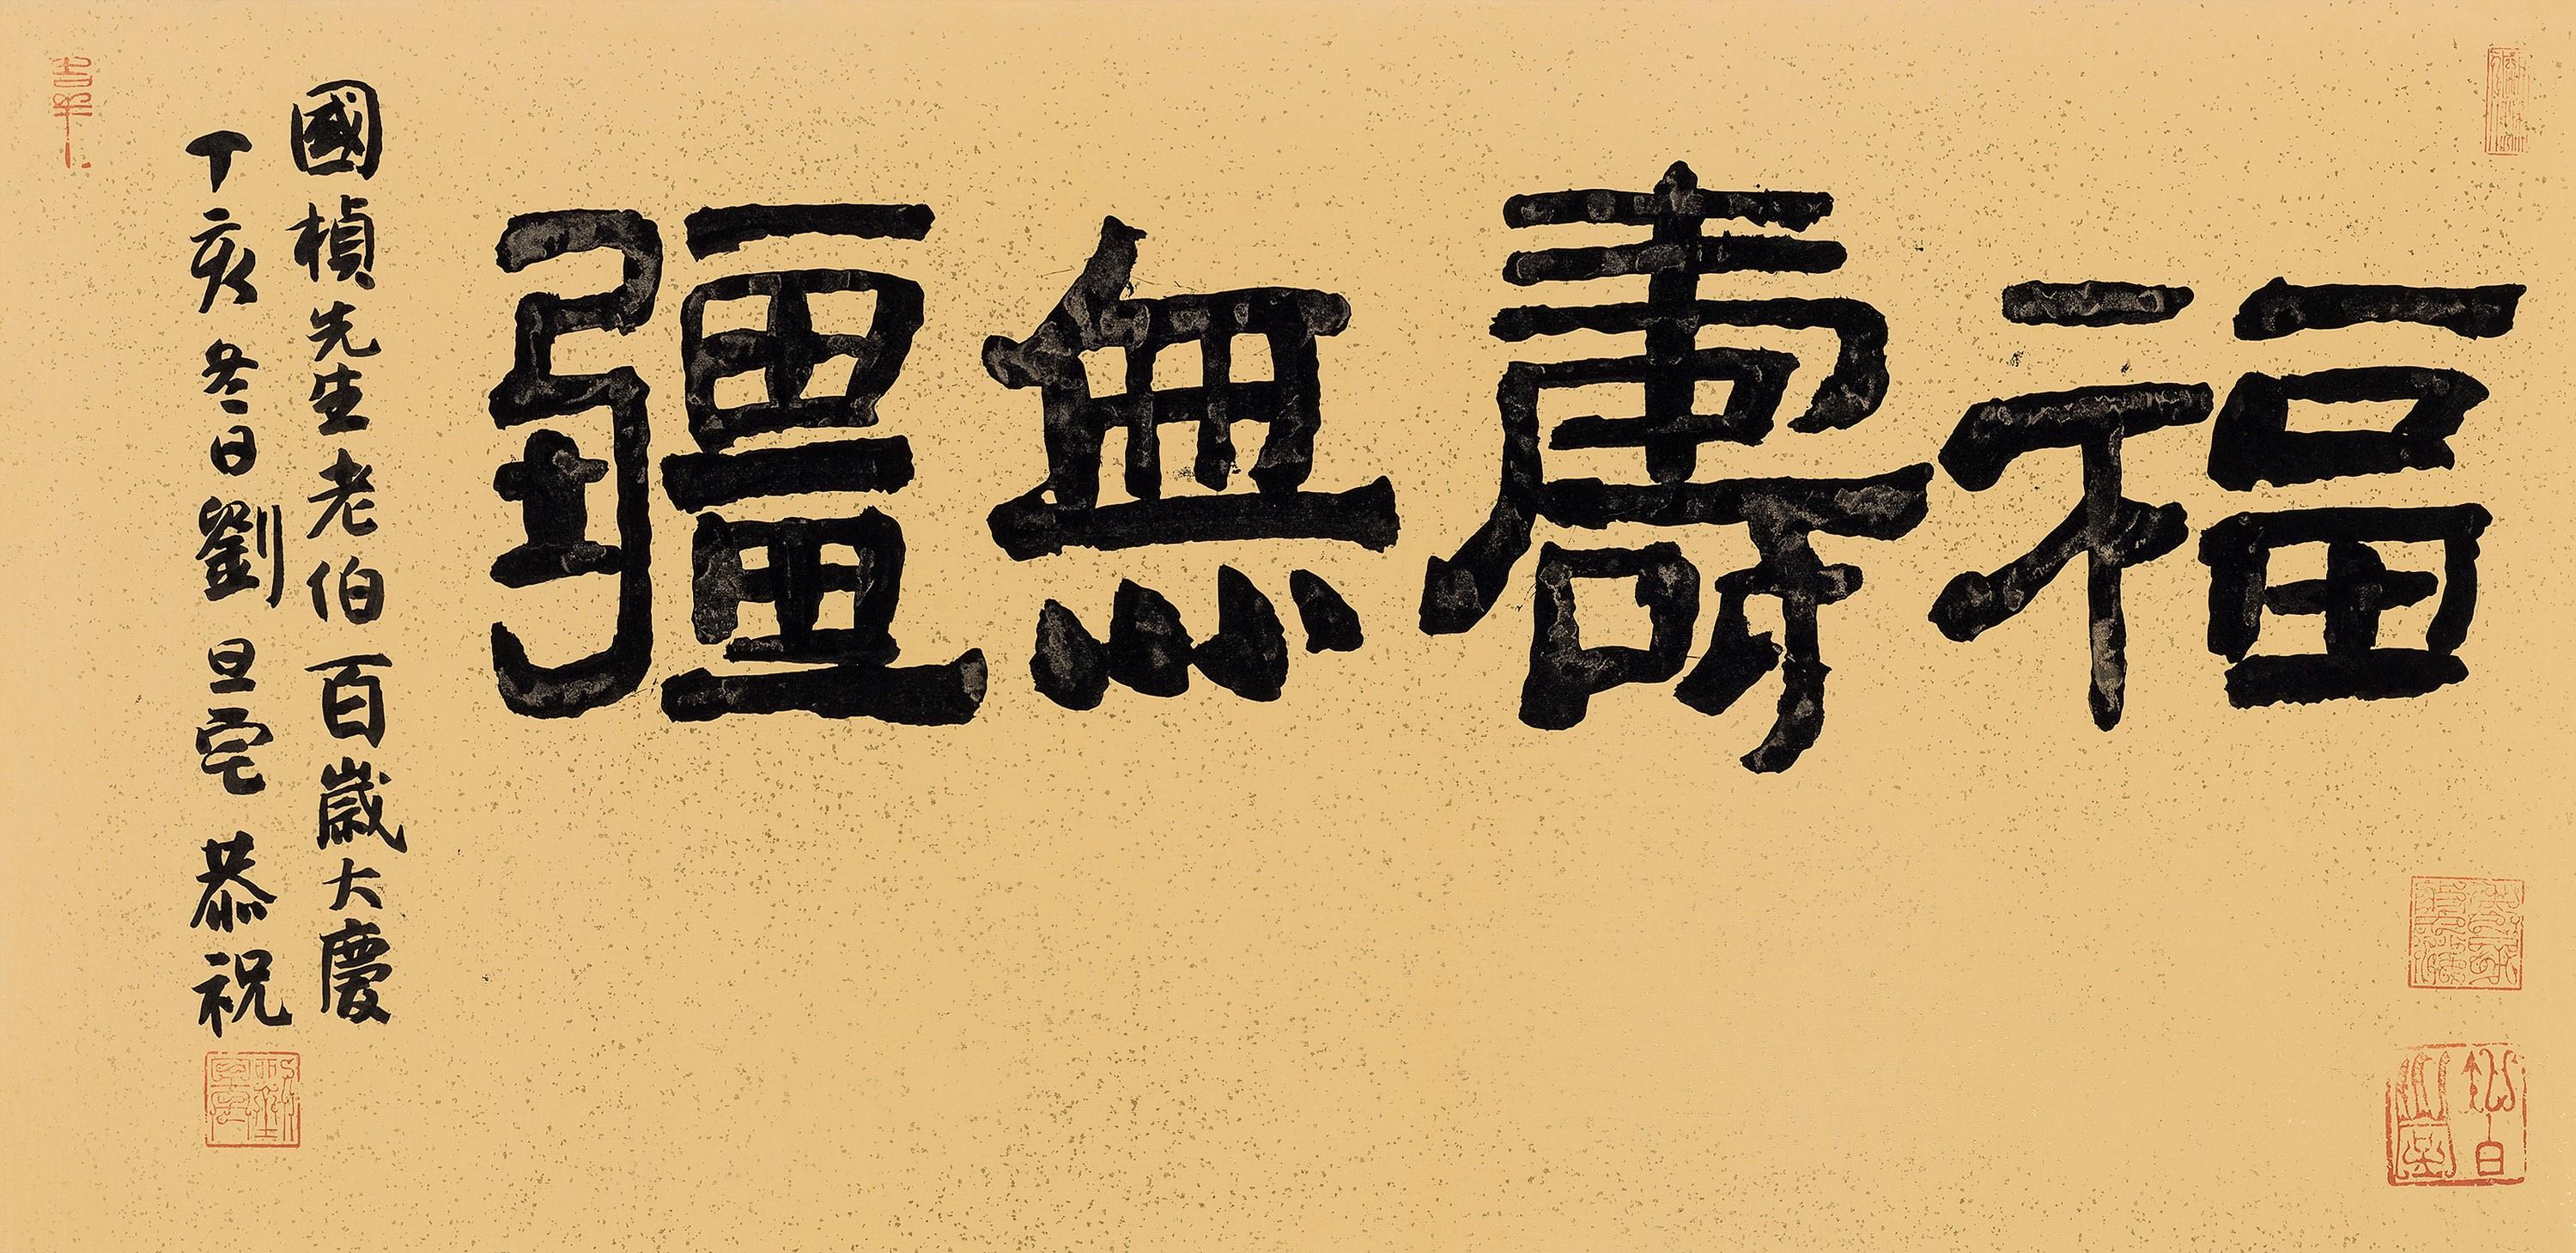 福壽無疆
國楨先生老伯百歲大慶
丁亥冬日劉旦宅恭祝